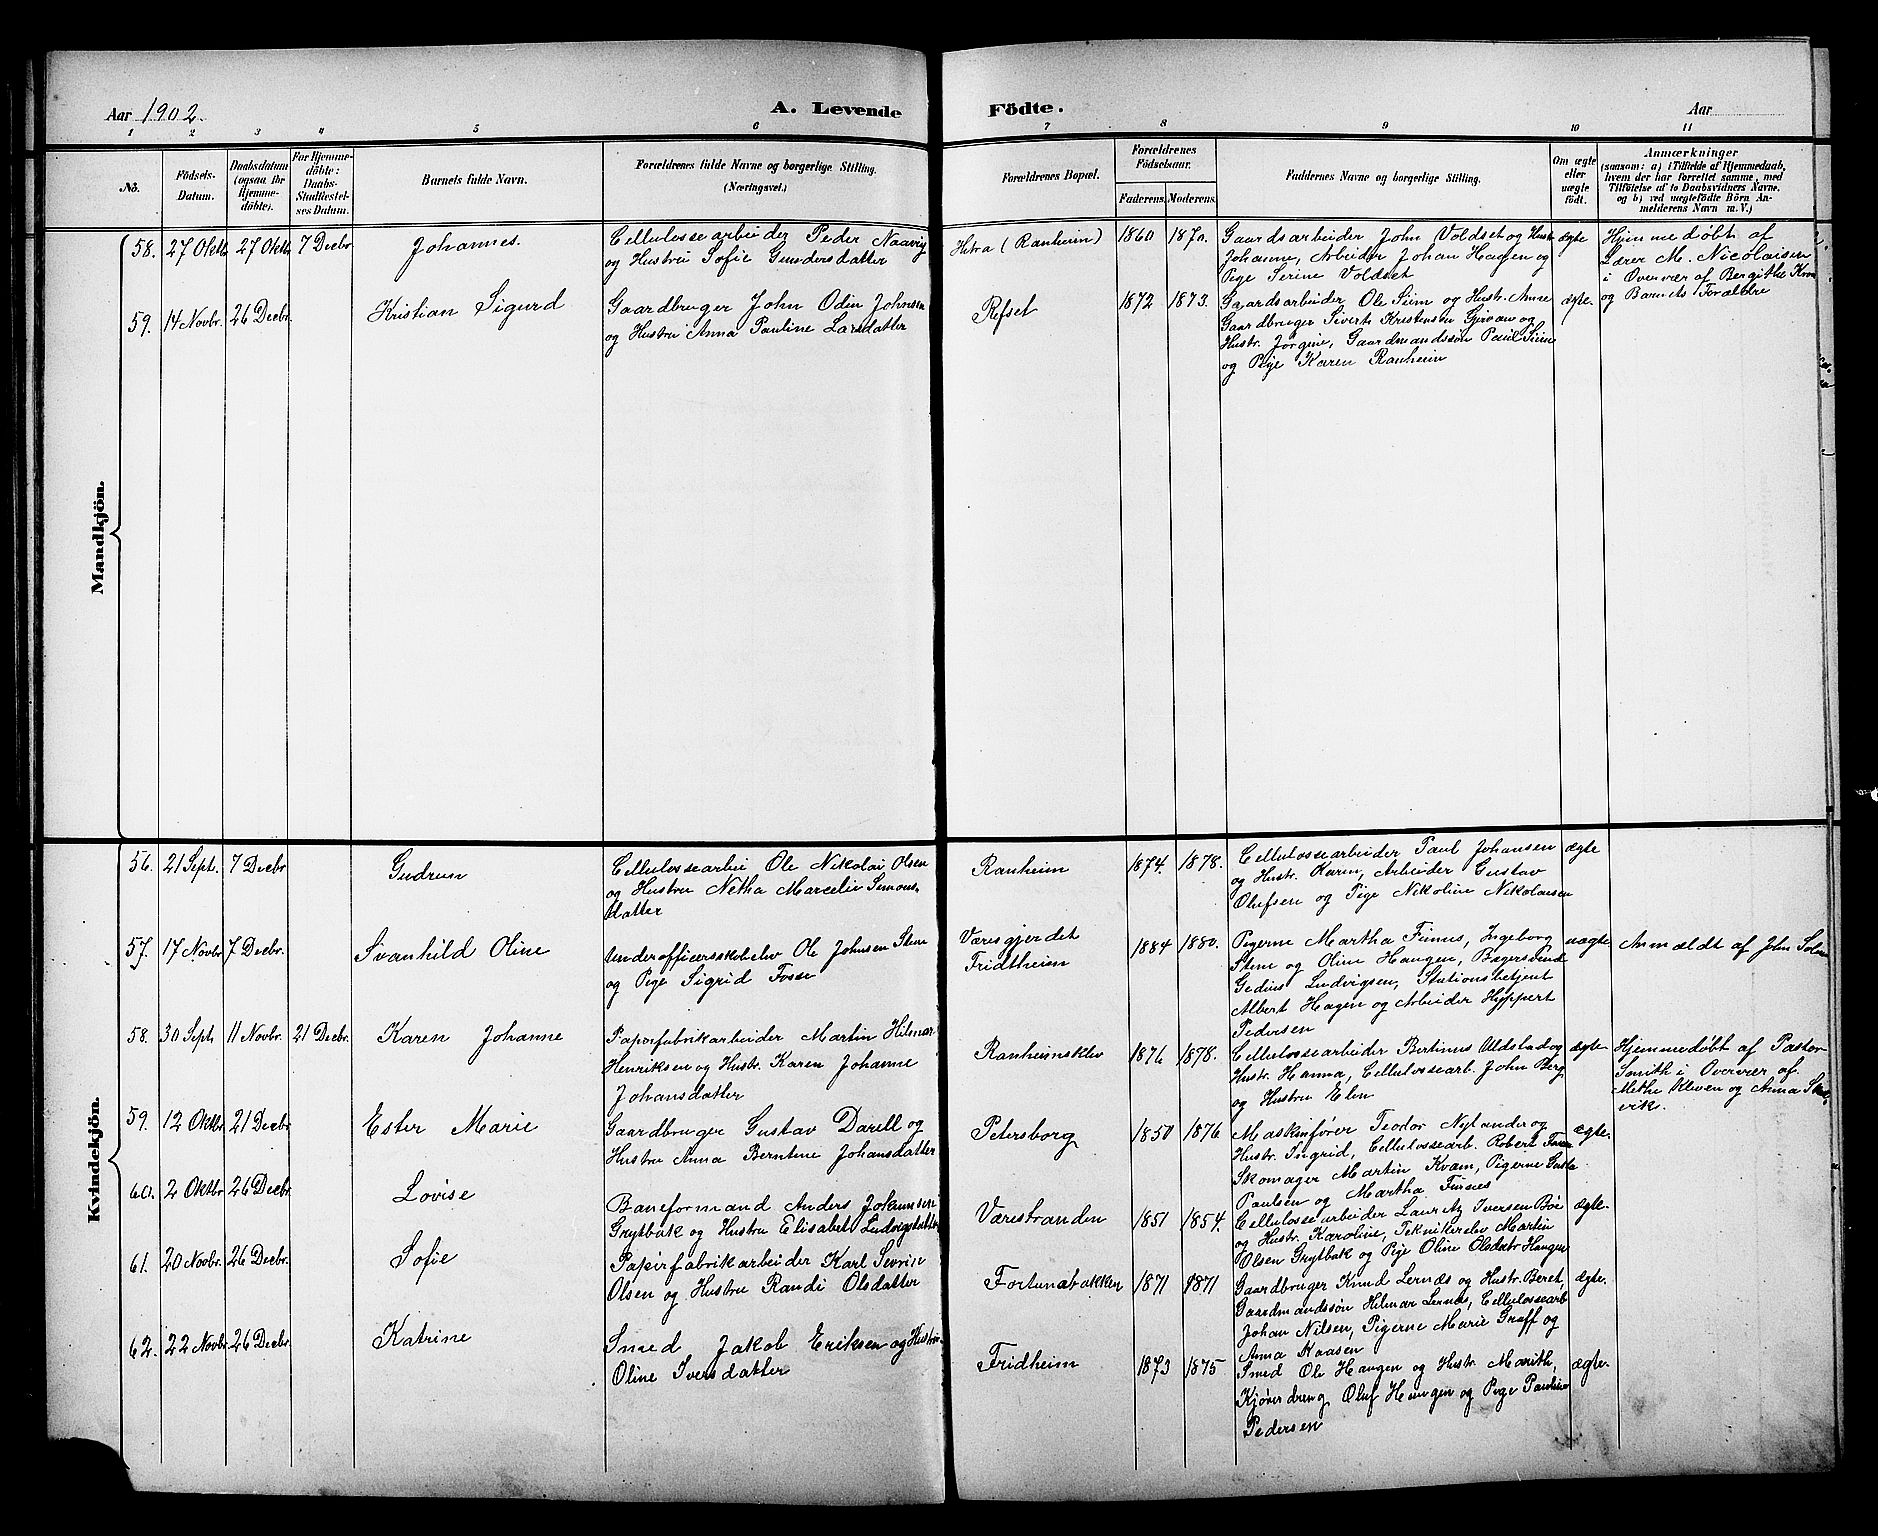 Aar 1902.
A. Levende
Födte.
Aar
1 2 3 4 5 6 7 8 9 10 11
No.
Födsels-
Datum.
Daabsdatum
(ogsaa for
Hjemme-
döbte).
For Hjemme-
döbte:
Daabs-
Stadfæstel-
ses Datum.
Barnets fulde Navn.
Forældrenes fulde Navne og borgerlige Stilling.
(Næringsvei.)
Forældrenes Bopæl.
Forældrenes
Födselsaar.
Faderens. Moderens.
Faddernes Navne og borgerlige Stilling.
Om ægte
eller
uægte
födt.
Anmærkninger
(saasom: a) i Tilfælde af Hjemmedaab,
hvem der har forrettet samme, med
Tilföielse af to Daabsvidners Navne,
og b) ved uægtefödte Börn An-
melderens Navn m. V.)
Mandkjön.
58. 27 Oktb 27 Oktb 7 Decbr
Johannes.
Cellulosse arbeider Peder Naavig
og Hustru Sofie Gundersdatter
Hitra (Ranheim)
1860 1870.
Gaardsarbeider John Voldset og Hustr.
Johanne, Arbeider Johan Hagen og
Pige Serine Voldset
ægte
Hjemmedøbt af
Lærer M. Nicolaisen
i Overvær af Bergithe
og Barnets Forældre
59. 14 Novbr. 26 Decbr.
Kristian Sigurd
Gaardbruger John Odin Johnsen
og Hustru Anna Pauline Larsdatter
Refset
1872 1873.
Gaardsarbeider Ole Siem og Hustr. Anne
Gaardbruger Sivert Kristensen Gjervan og
Hustr. Jørgine, Gaardmandssøn Paul Siem
og Pige Karen Ranheim
ægte.
Kvindekjön.
56. 21 Sept. 7 Decbr
Gudrun
Cellulossearbei Ole Nikolai Olsen
og Hustru Netha Marcelie Simons-
datter
Ranheim
1874. 1878.
Cellulossearbeider Paul Johansen
og Hustr. Karen, Arbeider Gustav
Olufsen og Pige Nikoline Nikolaisen
ægte
57. 17 Novbr 7 Decbr.
Svanhild Oline
Underofficersskolelev Ole Johnsen Stene
og Pige Sigrid Fosse
Væresgjerdet
Fridtheim
1884 1880.
Pigerne Martha Finnes, Ingeborg
Stene og Oline Haugen, Bøgersvend
Gedius Ludvigsen, Stationsbetjent
Albert Hagen og Arbeider Hyppert
Pedersen
uægte
Anmældt af John
58. 30 Sept. 11 Novbr. 21 Decbr.
Karen Johanne
Papirfabrikarbeider Martin Hilmar
Henriksen og Hustr. Karen Johanne
Johansdatter
Ranheimsklev
1876 1878.
Cellulossearbeider Bertinus Uldsladog
Hustr. Hanna, Cellulossearb. John Berg
og Hustru Elen
ægte
Hjemmedøbt af Pastor
Smith i Overvær af
Methe Kleven og Anna
vik.
59. 12 Oktbr 21 Decbr
Ester Marie
Gaardbruger Gustav Darell og
Hustru Anna Berntine Johansdatter
Petersborg
1850 1876
Maskinfører Teodor Nylander og
Hustr. Ingrid, Cellulossearb. Robert
Skomager Martin Kvam, Pigerne
Paulsen og Martha Finnes
ægte.
60. 2 Oktbr 26 Decbr.
Lovise
Baneformand Anders Johannsen
Grytbak og Hustru Elisabet Ludvigsdatter
Værestranden
1851 1854.
Cellulossearbeider Lauritz Iversen Böe
og Hustr. Karoline, Teknikerelev Martin
Olsen Grytbak og Pige Oline Olsdatr Haugen
ægte.
61. 20 Novbr. 26 Decbr.
Sofie
Papirfabrikarbeider Karl Sevrin
Olsen og Hustru Randi Olsdatter
Fortunabakken
1871 1871
Gaardbruger Knud Lernæs og Hustr. Beret,
Gaardmandssön Hilmar Lernæs, Cellulossearb
Johan Nilsen, Pigerne Marie Graff og
Anna Kaasen
ægte.
62. 22 Novbr. 26 Decbr.
Katrine
Smed Jakob Eriksen og Hustru
Oline Iversdatter
Fridheim
1873 1875
Smed Ole Haugen og Hustr. Marith,
Kjøredreng Oluf Haugen og Pige Pauline
Pedersen
ægte.